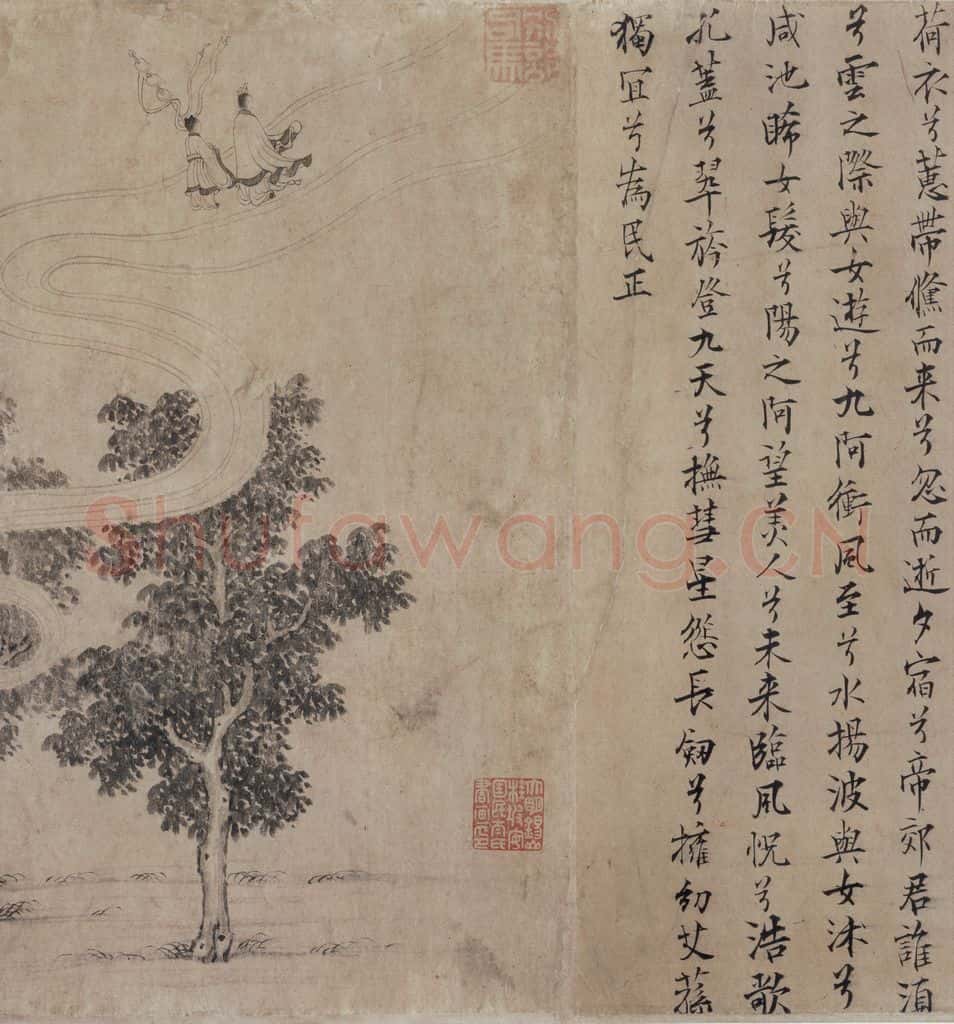 荷衣兮蕙帶儵而来兮忽而逝夕宿兮帝郊君誰湏
兮雲之際與女遊兮九阿衝風至兮水揚波與女沐兮
咸池晞女髮兮陽之阿望美人兮未来臨風怳兮浩歌
孔蓋兮翠旍登九天兮撫彗星慫長劔兮擁幼艾蓀
獨冝兮為民正
Shufawang.CN